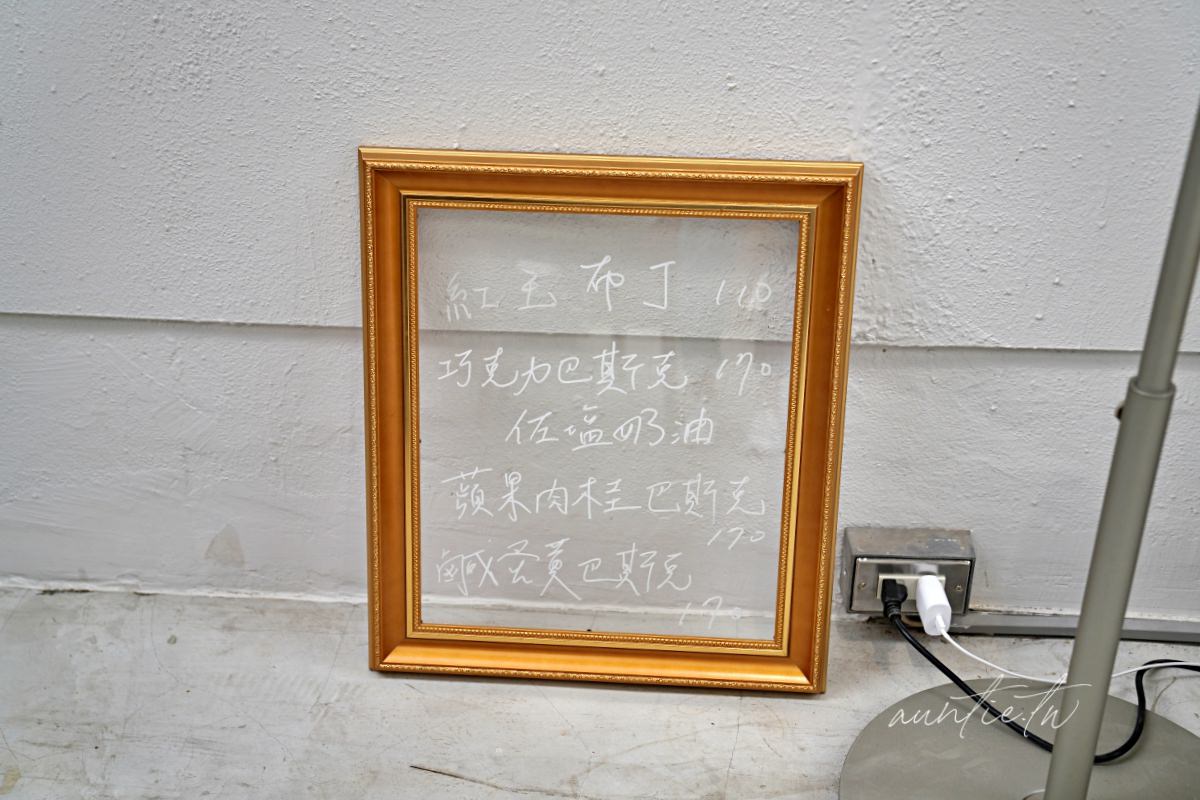 紅玉布丁 110
巧克力巴斯克 170
伍塩奶油
蘋果肉桂巴斯克
170
鹹蛋黃巴斯克
170
auntie.tw